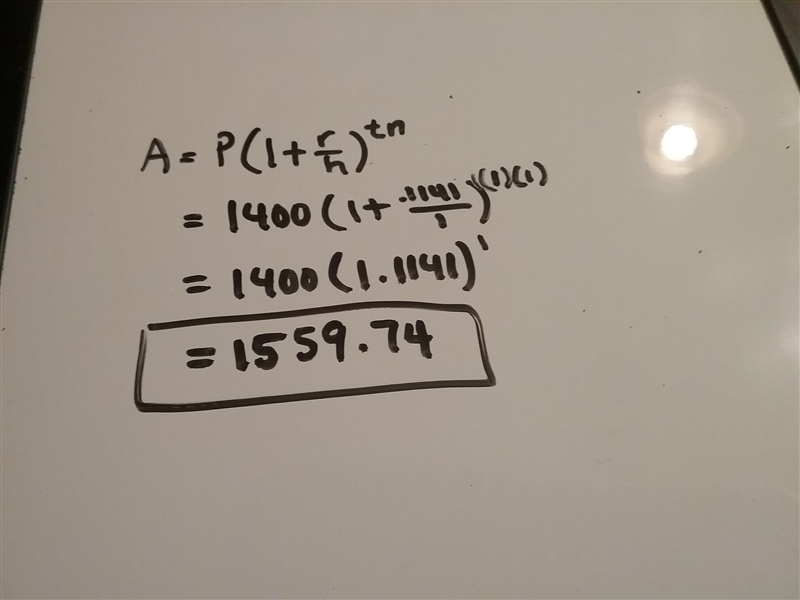 A = P(1+r/n)^tn
= 1400(1+.1141/1)^(1)(1)
= 1400(1.1141)^1
= 1559.74